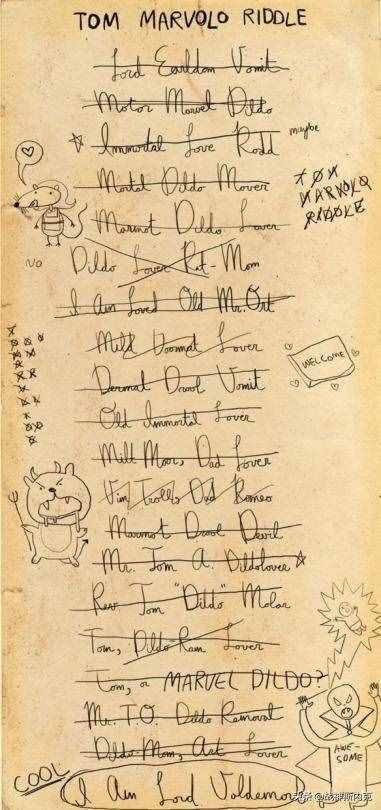 TOM MARVOLO RIDDLE
Lord Earldom Vomit
Motor Marvel Dildo
Immortal Love Rodd
maybe
Mortal Dildo Mover
TOM
MARVOLO
RIDDLE
Marmot Dildo Lover
Dildo Lover Rat-Mom
NO
I Am Loved Old Mr. Ort
Mild Doormat Lover
WELCOME
Dermal Drool Vomit
Old Immortal Lover
Milt Moor, Dad Lover
Vim Troll, Dad Romeo
Marmot Drool Devil
Mr. Tom A. Dildolover
Rev Tom "Dildo" Molar
Tom, Dildo-Ram Lover
Tom, or MARVEL DILDO?
Mr. T.O. Dildo Removal
Dildo Mom, Art Lover
AWE-
SOME
COOL
I Am Lord Voldemort